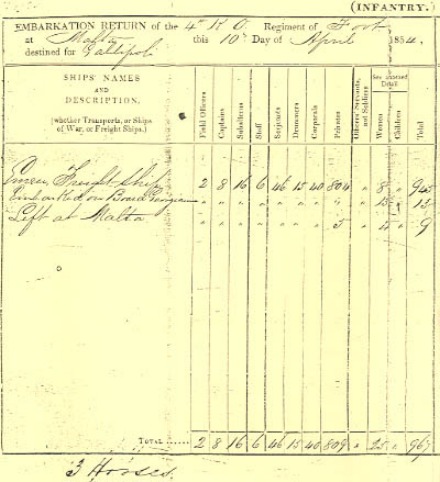 (INFANTRY.)
EMBARKATION RETURN of the 4th K. O. Regiment of Foot
at Malta this 10th Day of April 1854.
destined for Gallipoli
SHIPS' NAMES AND DESCRIPTION, (whether Transports, or Ships of War, or Freight Ships.) Field Officers Captains Subalterns Staff Serjeants Drummers Corporals Privates Officers' Servants, not Soldiers Women Children Total
Freight Ship 2 8 16 6 46 15 40 804 " 8 " 945
Embarked on Board " " " " " " " " " 13 " 13
Left at Malta " " " " " " " 5 " 4 " 9
TOTAL ...... 2 8 16 6 46 15 40 809 " 25 " 967
3 Horses.